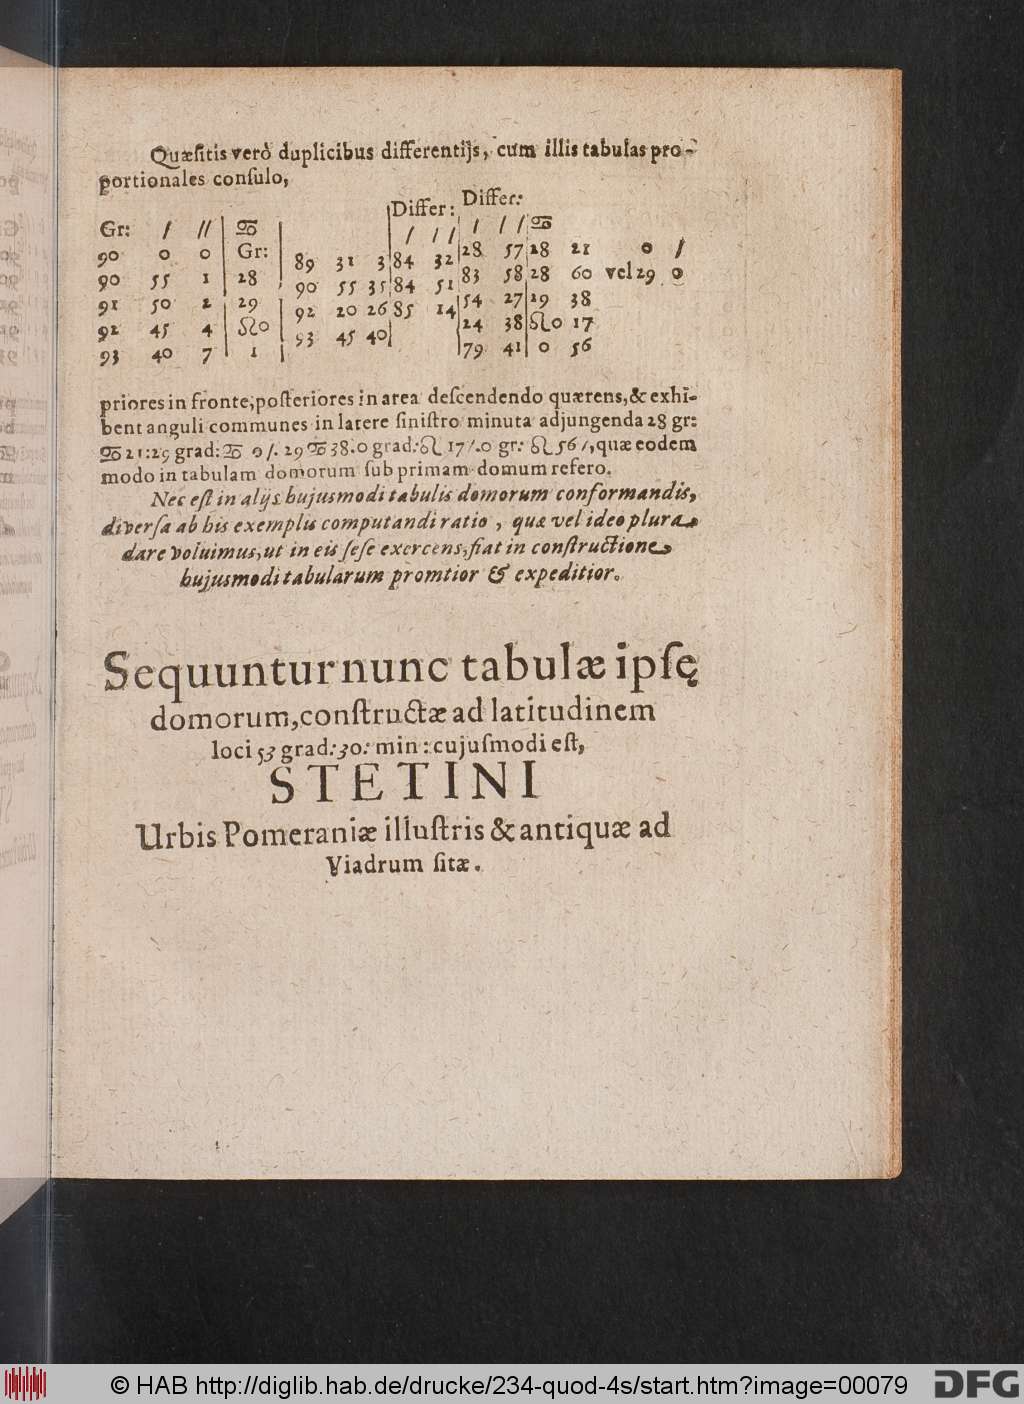 Quæſitis verò duplicibus differentijs, cum illis tabulas pro-
portionales conſulo,
Differ: Differ:
Gr: / // ♋ / // / // ♋
90 0 0 Gr: 89 31 3 84 32 28 57 28 21 0 /
90 55 1 28 90 55 35 84 51 83 58 28 60 vel 29 0
91 50 2 29 92 20 26 85 14 54 27 29 38
92 45 4 ♌0 93 45 40 24 38 ♌0 17
93 40 7 1 79 41 0 56
priores in fronte, poſteriores in area deſcendendo quærens, & exhi-
bent anguli communes in latere ſiniſtro minuta adjungenda 28 gr:
♋ 21: 29 grad: ♋ 0 /. 29 ♋ 38. 0 grad: ♌ 17 /. 0 gr: ♌ 56 /, quæ eodem
modo in tabulam domorum ſub primam domum refero.
Nec eſt in alijs hujusmodi tabulis domorum conformandis,
diverſa ab his exemplis computandi ratio, quæ vel ideo plura
dare voluimus, ut in eis ſeſe exercens, fiat in conſtructione
hujusmodi tabularum promtior & expeditior.
Sequuntur nunc tabulæ ipſę
domorum, conſtructæ ad latitudinem
loci 53 grad: 30: min: cujuſmodi eſt,
STETINI
Urbis Pomeraniæ illuſtris & antiquæ ad
Viadrum ſitæ.
© HAB http://diglib.hab.de/drucke/234-quod-4s/start.htm?image=00079
DFG